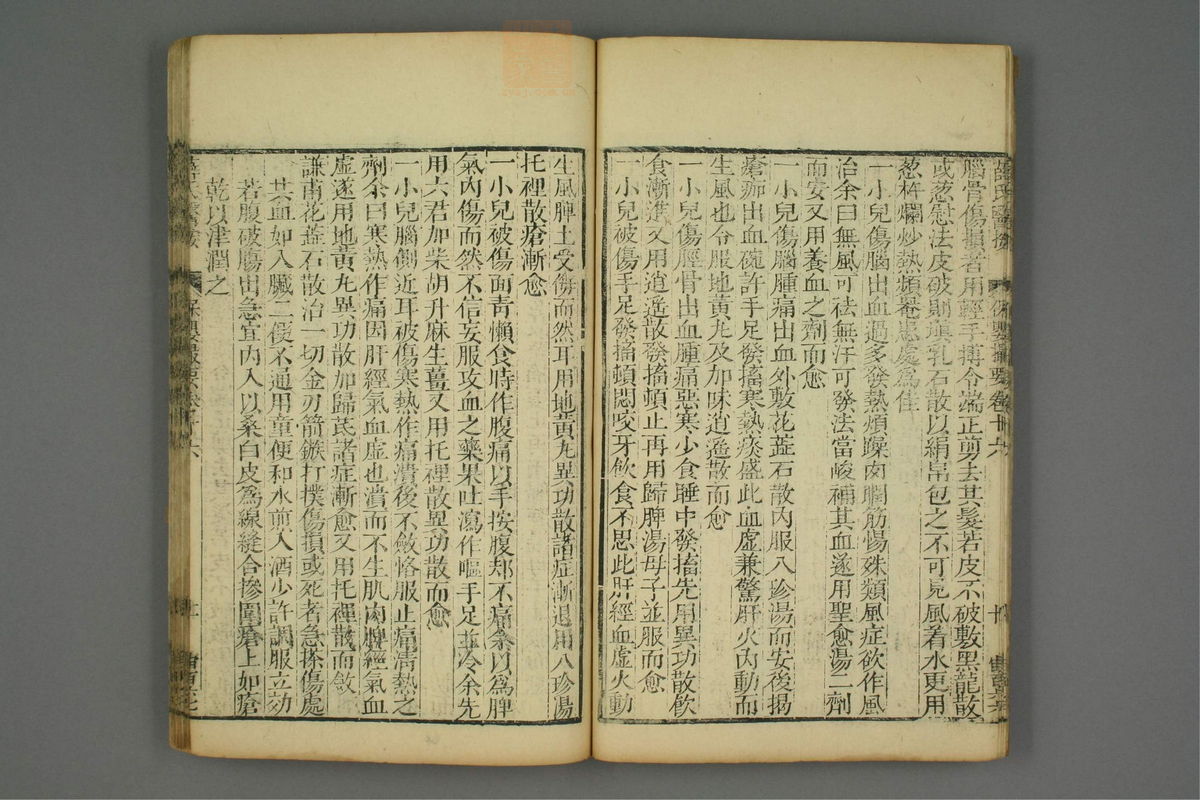 薛氏醫按 保嬰撮要卷十六
腦骨傷損者用輕手搏令端正剪去其髮若皮不破敷黑龍散
或葱慰法皮破則填乳石散以絹帛包之不可見風着水更用
葱杵爛炒熱頻罨患處爲佳
一小兒傷腦出血過多發熱煩躁肉瞤筋惕殊類風症欲作風
治余曰無風可祛無汗可發法當峻補其血遂用聖愈湯二劑
而安又用養血之劑而愈
一小兒傷腦腫痛出血外敷花蕋石散內服八珍湯而安後揭
瘡痂出血碗許手足發搐寒熱痰盛此血虛兼驚肝火內動而
生風也令服地黃丸及加味逍遙散而愈
一小兒傷脛骨出血腫痛惡寒少食睡中發搐先用異功散飲
食漸進又用逍遙散發搐頓止再用歸脾湯母子並服而愈
一小兒被傷手足發搐頓悶咬牙飲食不思此肝經血虛火動
生風脾土受傷而然耳用地黃丸異功散諸症漸退用八珍湯
托裡散瘡漸愈
一小兒被傷面青懶食時作腹痛以手按腹却不痛余以爲脾
氣內傷而然不信妄服攻血之藥果吐瀉作嘔手足並冷余先
用六君加柴胡升麻生薑又用托裡散異功散而愈
一小兒腦側近耳被傷寒熱作痛潰後不斂恪服止痛清熱之
劑余曰寒熱作痛因肝經氣血虛也潰而不生肌肉脾經氣血
虛遂用地黃丸異功散加歸芪諸症漸愈又用托裡散而斂
謙甫花蕋石散治一切金刃箭鏃打撲傷損或死者急搽傷處
其血如入臟二便不通用童便和水煎入酒少許調服立効
若腹破腸出急宜內入以桑白皮爲線縫合摻圍瘡上如瘡
乾以津潤之